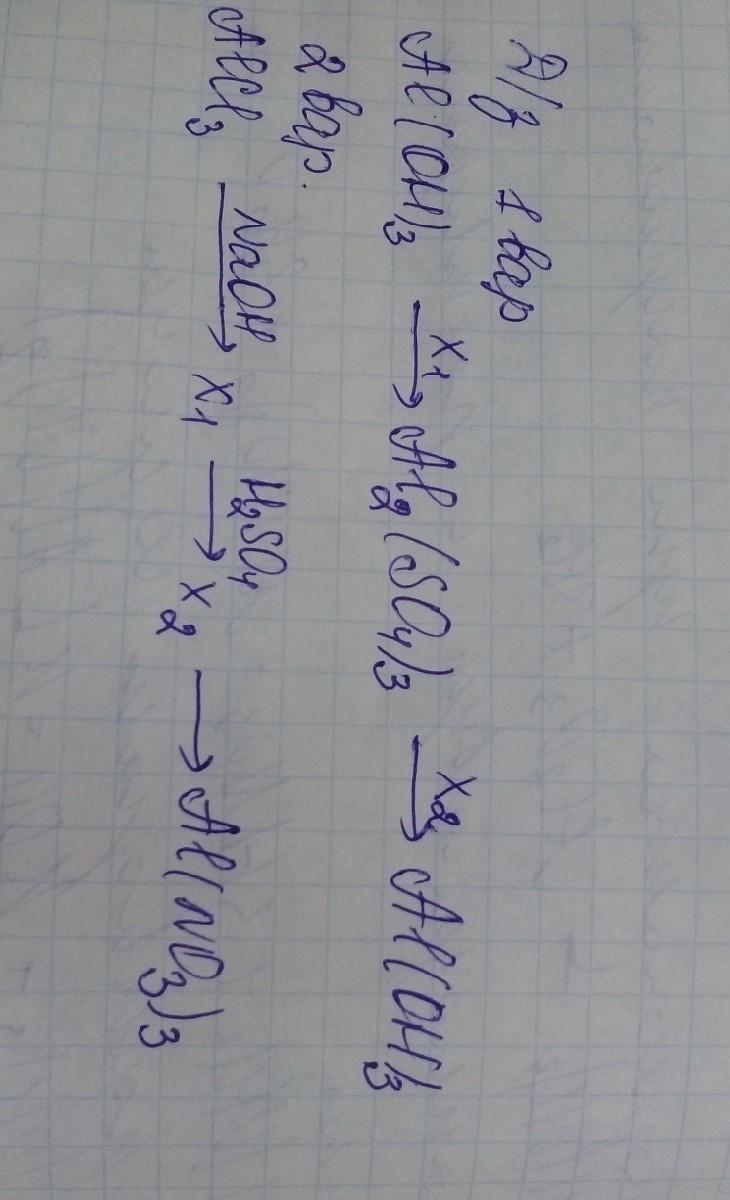 Д/з 1 вар
Al(OH)3 —X1→ Al2(SO4)3 —X2→ Al(OH)3
2 вар.
AlCl3 —NaOH→ X1 —H2SO4→ X2 → Al(NO3)3